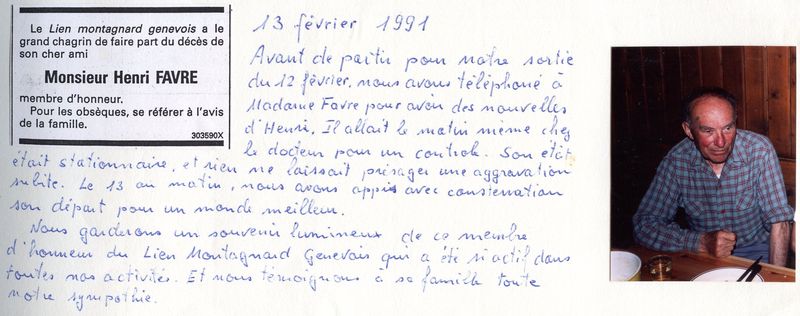 Le Lien montagnard genevois a le
grand chagrin de faire part du décès de
son cher ami
Monsieur Henri FAVRE
membre d'honneur.
Pour les obsèques, se référer à l'avis
de la famille.
303590X
13 février 1991
Avant de partir pour notre sortie
du 12 février, nous avons téléphoné à
Madame Favre pour avoir des nouvelles
d'Henri. Il allait le matin même chez
le docteur pour un contrôle. Son état
était stationnaire, et rien ne laissait présager une aggravation
subite. Le 13 au matin, nous avons appris avec consternation
son départ pour un monde meilleur.
Nous garderons un souvenir lumineux de ce membre
d'honneur du Lien Montagnard Genevois qui a été si actif dans
toutes nos activités. Et nous témoignons à sa famille toute
notre sympathie.